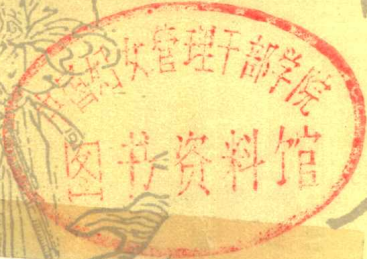 中国妇女管理干部学院
图书资料馆